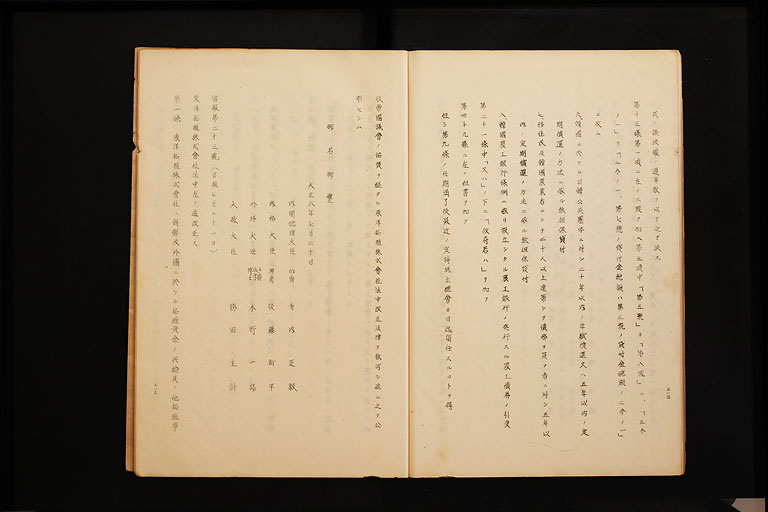 議決權ノ過半數ヲ以テ之ヲ決ス
第十三條第一項ニ左ノ三號ヲ加ヘ第三項中「第五號」ヲ「第八號」ニ、「三分
ノ一」ヲ「二分ノ一、第七號ノ貸付金總額ハ第三號ノ貸付金總額ノ二分ノ一」
ニ改ム
六、韓國ニ於ケル日韓公共團體ニ對シ二十年以內ノ年賦償還又ハ五年以內ノ定
期償還ノ方法ニ依ル無擔保貸付
七、移住民及韓國農業者ニシテ二十人以上連帶シテ債務ヲ負フ者ニ對シ五年以
內ノ定期償還ノ方法ニ依ル無擔保貸付
八、韓國農工銀行條例ニ依リ設立シタル農工銀行ノ發行スル農工債券ノ引受
第二十一條中「又ハ」ノ下ニ「政府若ハ」ヲ加フ
第四十九條ニ左ノ但書ヲ加フ
但シ第九條ノ任期滿了後最近ノ定時株主總會ノ日迄留任スルコトヲ得
朕帝國議會ノ協贊ヲ經タル東洋拓殖株式會社法中改正法律ヲ裁可シ玆ニ之ヲ公
布セシム
御名御璽
大正六年七月二十日
內閣總理大臣 伯爵 寺內正毅
內務大臣 男爵 後藤新平
外務大臣
大藏大臣 勝田主計
官報第二十三號
東洋拓殖株式會社法中左ノ通改正ス
第一條 東洋拓殖株式會社ハ朝鮮及外國ニ於ケル拓殖資金ノ供給其ノ他拓殖事